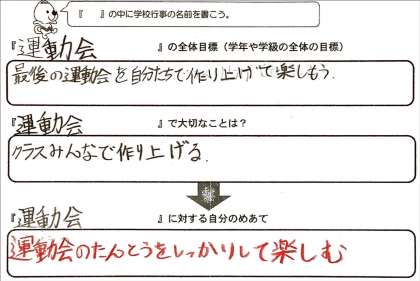 『　　』の中に学校行事の名前を書こう。
『運動会　』の全体目標（学年や学級の全体の目標）
最後の運動会を自分たちで作り上げて楽しもう.
『運動会　』で大切なことは？
クラスみんなで作り上げる.
『運動会　』に対する自分のめあて
運動会のたんとうをしっかりして楽しむ